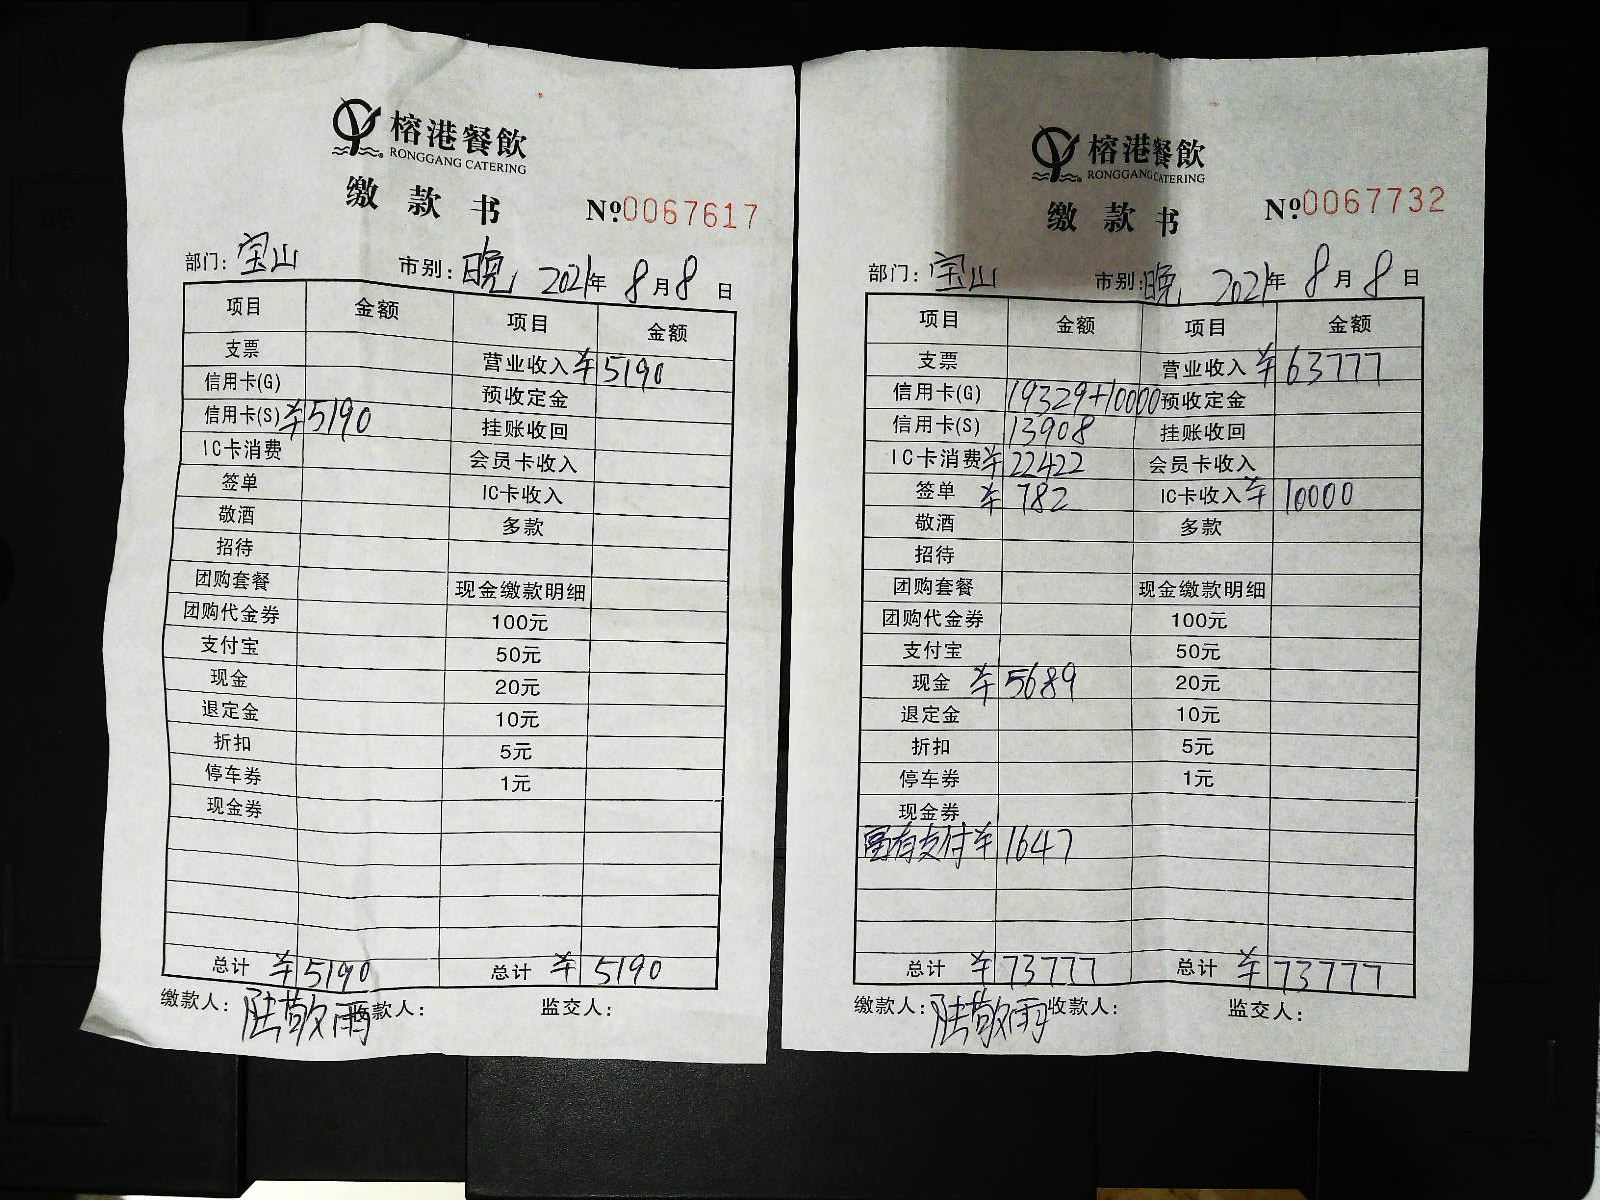 榕港餐飲
RONGGANG CATERING
缴款书 №0067617
部门：宝山 市别：晚 2021年8月8日
项目 金额 项目 金额
支票 营业收入 ¥5190
信用卡(G) 预收定金
信用卡(S) ¥5190 挂账收回
IC卡消费 会员卡收入
签单 IC卡收入
敬酒 多款
招待
团购套餐 现金缴款明细
团购代金券 100元
支付宝 50元
现金 20元
退定金 10元
折扣 5元
停车券 1元
现金券
总计 ¥5190 总计 ¥5190
缴款人：陆敬雨 收款人： 监交人：
榕港餐飲
RONGGANG CATERING
缴款书 №0067732
部门：宝山 市别：晚 2021年8月8日
项目 金额 项目 金额
支票 营业收入 ¥63777
信用卡(G) 19329+10000 预收定金
信用卡(S) 13908 挂账收回
IC卡消费 ¥22422 会员卡收入
签单 ¥782 IC卡收入 ¥10000
敬酒 多款
招待
团购套餐 现金缴款明细
团购代金券 100元
支付宝 50元
现金 ¥5689 20元
退定金 10元
折扣 5元
停车券 1元
现金券
有支付 ¥1647
总计 ¥73777 总计 ¥73777
缴款人：陆敬雨 收款人： 监交人：